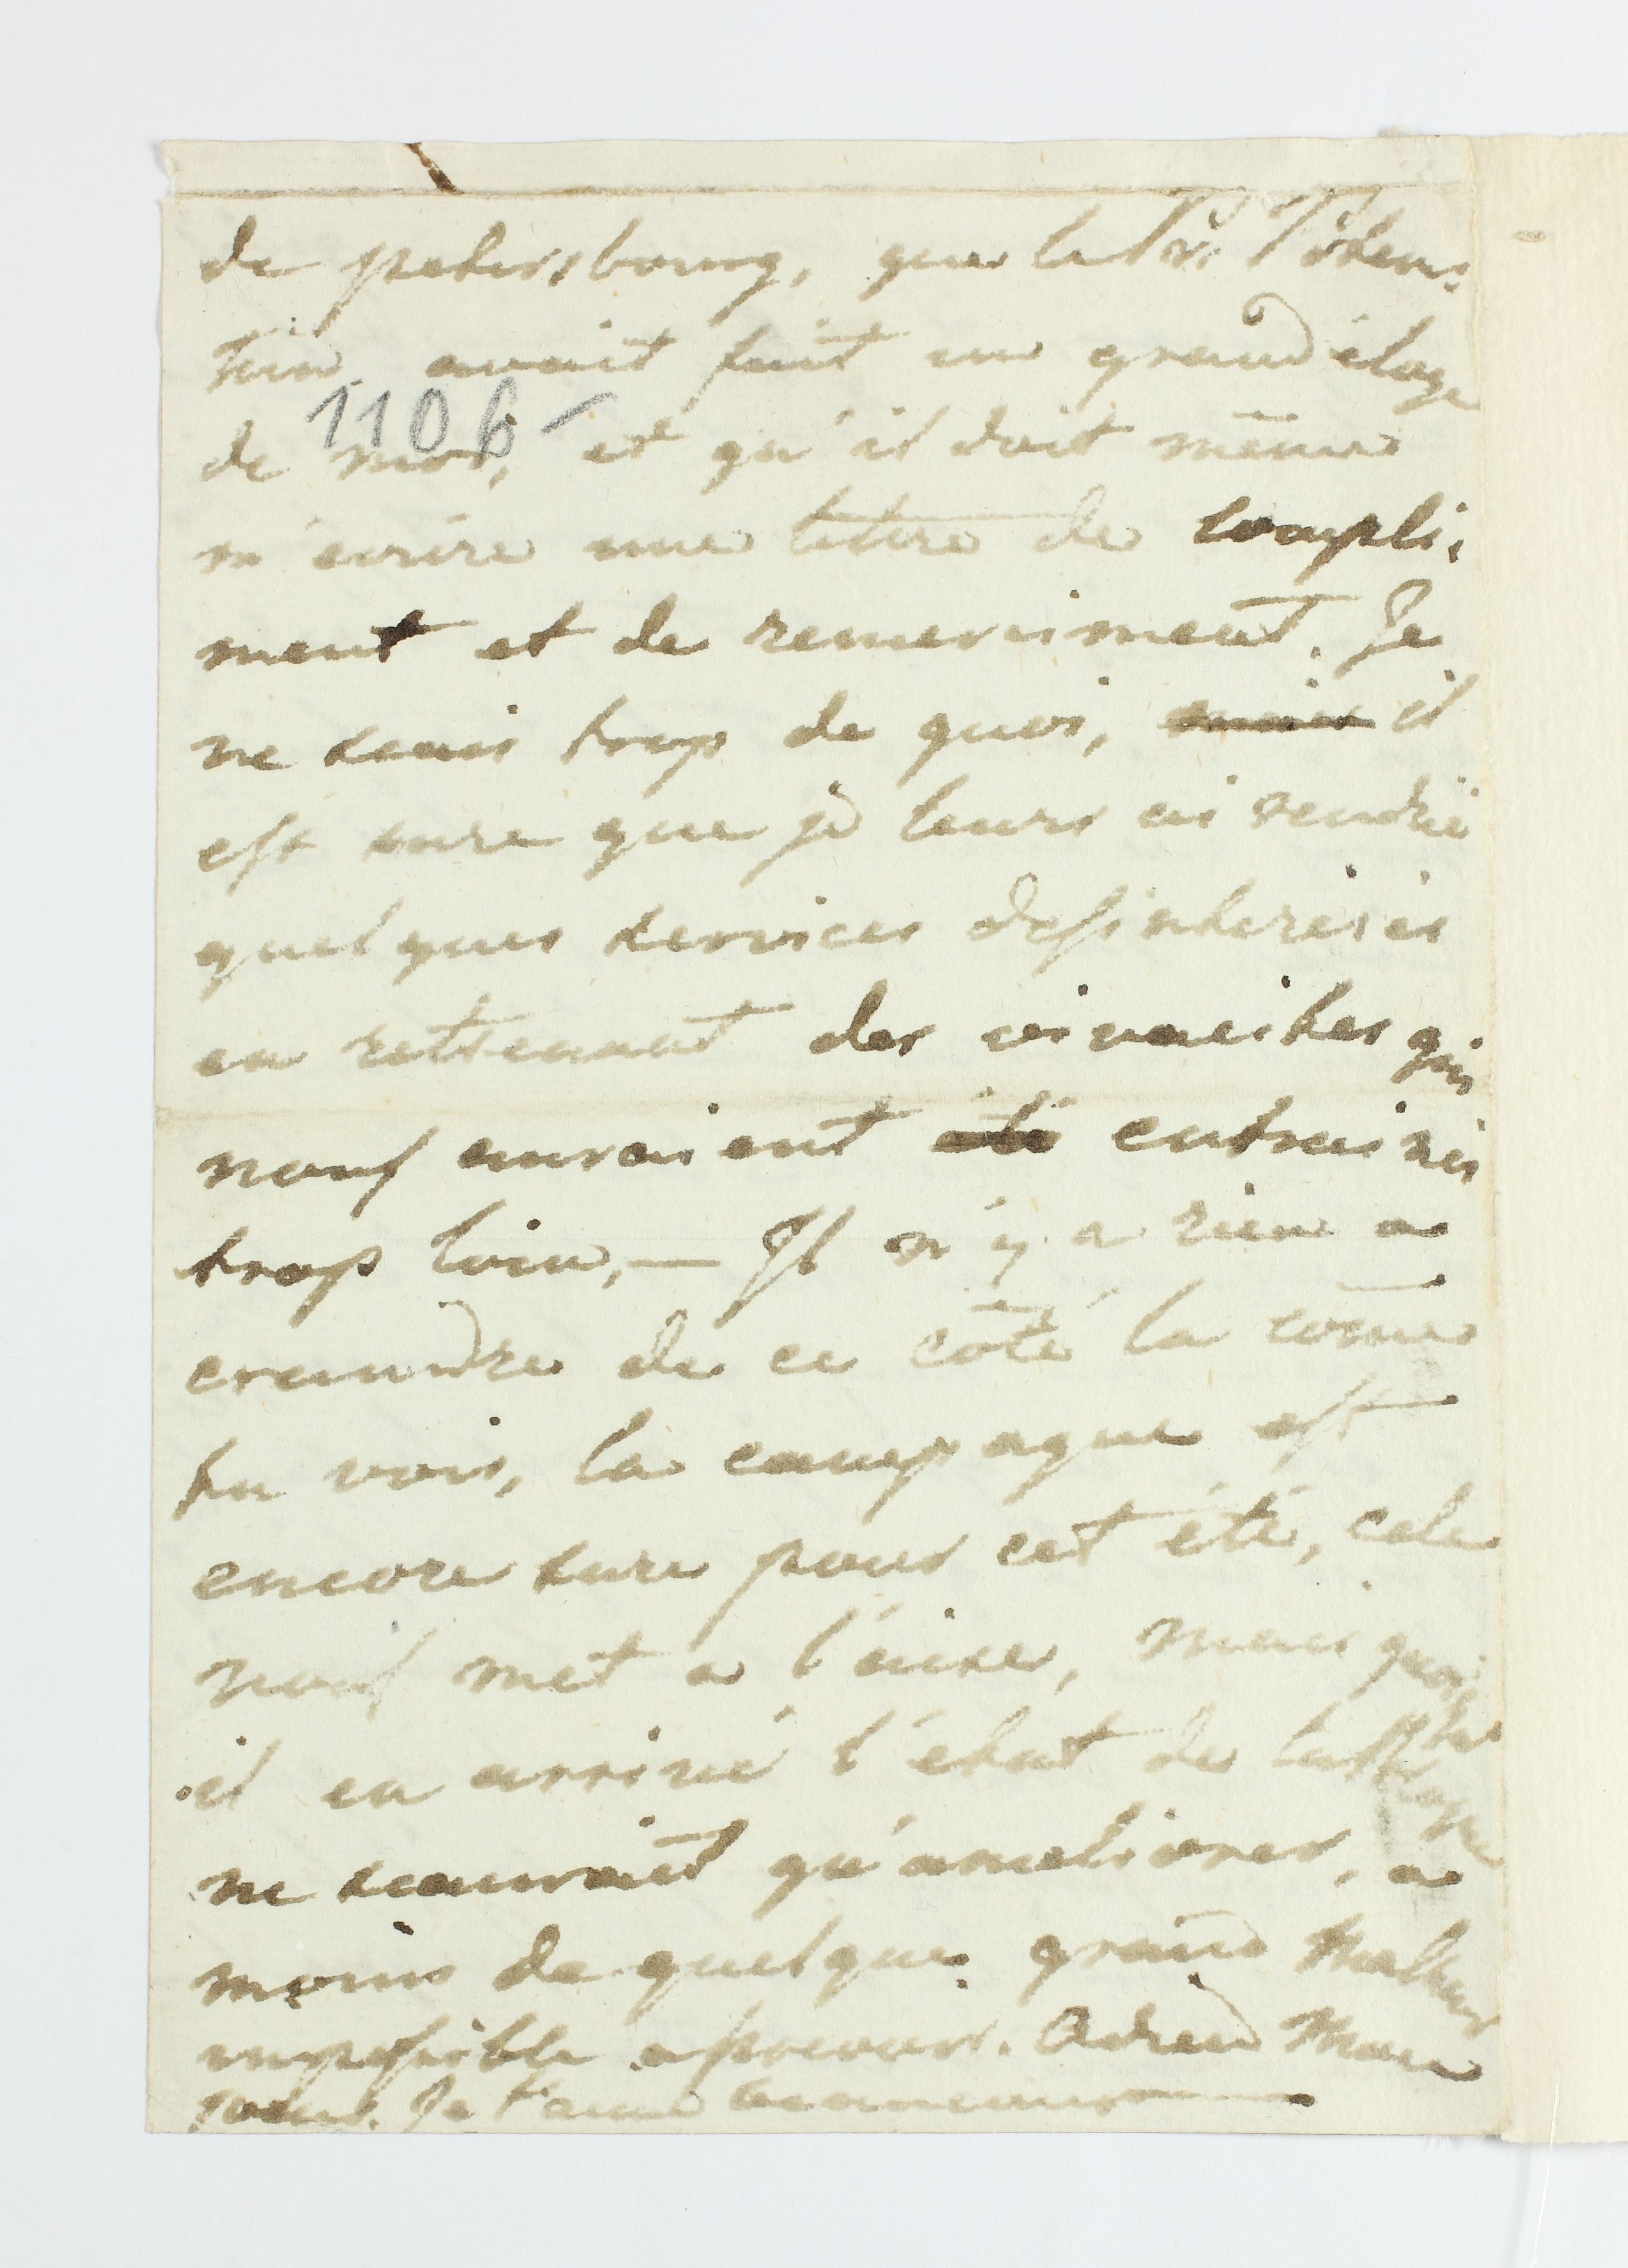 de petersbourg, que le Pr: Potem:
kin avait fait un grand éloge
1106
de moi, et qu'il doit même
m'ecrire une lettre de compli:
ment et de remerciment. Je
ne sais trop de quoi, mais il
est sure que je leurs ai rendu
quelques services desinteressés
en rettenant des vivacites qui
nous auroient été entrainés
trop loin, — Il n'y a rien a
craindre de ce côté la come
tu vois, la campagne est
encore sure pour cet été, cela
nous met a l'aise, mais quoi
il en arrivé l'état de
ne scauroit qu'ameliorer, a
moins de quelque grand Malheur
impossible a prevoir. Adieu Mon
coeur. Je t'aime beaucoup